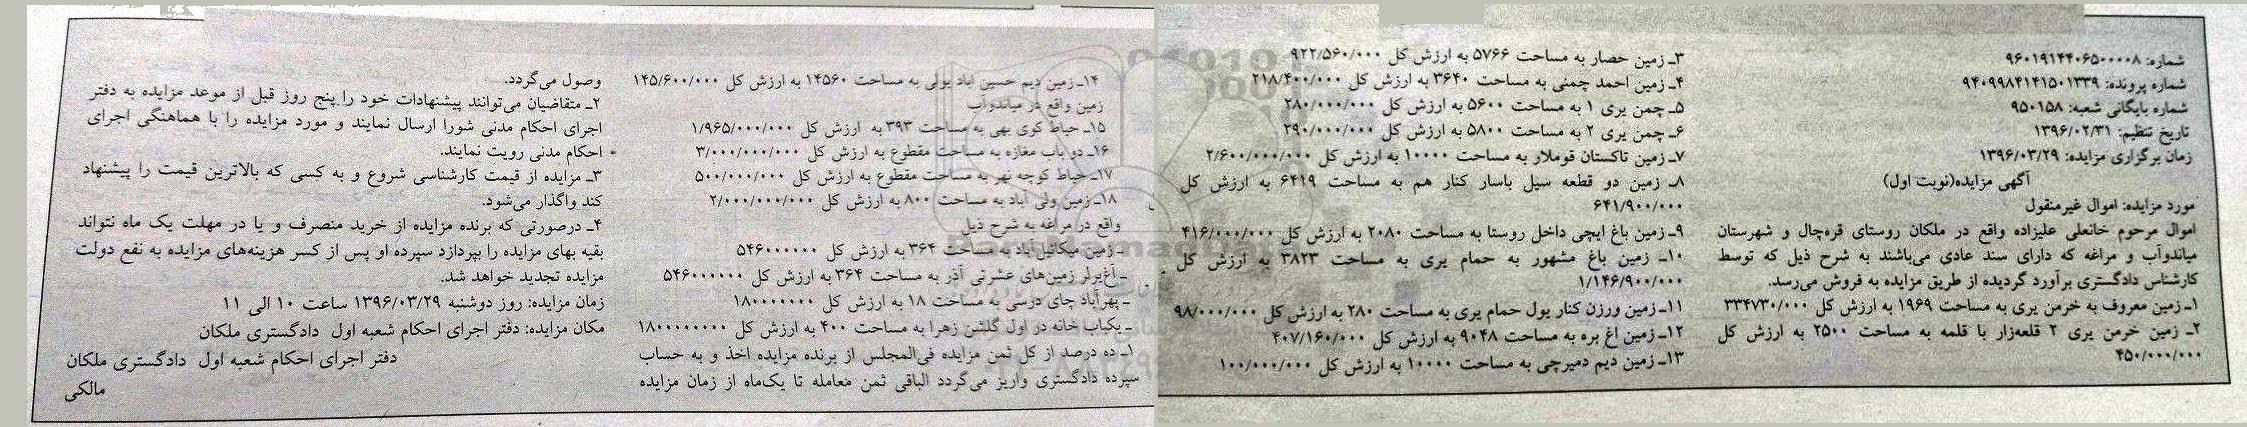 شماره: ۹۶۰۱۹۱۴۴۰۶۵۰۰۰۰۸
شماره پرونده: ۹۴۰۹۹۸۴۱۴۱۵۰۱۳۳۹
شماره بایگانی شعبه: ۹۵۰۱۵۸
تاریخ تنظیم: ۱۳۹۶/۰۲/۳۱
زمان برگزاری مزایده: ۱۳۹۶/۰۳/۲۹
آگهی مزایده(نوبت اول)
مورد مزایده: اموال غیرمنقول
اموال مرحوم خانعلی علیزاده واقع در ملکان روستای قره‌چال و شهرستان
میاندوآب و مراغه که دارای سند عادی می‌باشند به شرح ذیل که توسط
کارشناس دادگستری برآورد گردیده از طریق مزایده به فروش می‌رسد.
۱ـ زمین معروف به خرمن یری به مساحت ۱۹۶۹ به ارزش کل ۳۳۴۷۳۰/۰۰۰
۲ـ زمین خرمن یری ۲ قلعه‌زار با قلمه به مساحت ۲۵۰۰ به ارزش کل
۴۵۰/۰۰۰/۰۰۰
۳ـ زمین حصار به مساحت ۵۷۶۶ به ارزش کل ۹۲۲/۵۶۰/۰۰۰
۴ـ زمین احمد چمنی به مساحت ۳۶۴۰ به ارزش کل ۲۱۸/۴۰۰/۰۰۰
۵ـ چمن یری ۱ به مساحت ۵۶۰۰ به ارزش کل ۲۸۰/۰۰۰/۰۰۰
۶ـ چمن یری ۲ به مساحت ۵۸۰۰ به ارزش کل ۲۹۰/۰۰۰/۰۰۰
۷ـ زمین تاکستان قوملار به مساحت ۱۰۰۰۰ به ارزش کل ۲/۶۰۰/۰۰۰/۰۰۰
۸ـ زمین دو قطعه سیل باسار کنار هم به مساحت ۶۴۱۹ به ارزش کل
۶۴۱/۹۰۰/۰۰۰
۹ـ زمین باغ ایچی داخل روستا به مساحت ۲۰۸۰ به ارزش کل ۴۱۶/۰۰۰/۰۰۰
۱۰ـ زمین باغ مشهور به حمام یری به مساحت ۳۸۲۳ به ارزش کل
۱/۱۴۶/۹۰۰/۰۰۰
۱۱ـ زمین ورزن کنار یول حمام یری به مساحت ۲۸۰ به ارزش کل ۹۸/۰۰۰/۰۰۰
۱۲ـ زمین اغ بره به مساحت ۹۰۴۸ به ارزش کل ۴۰۷/۱۶۰/۰۰۰
۱۳ـ زمین دیم دمیرچی به مساحت ۱۰۰۰۰ به ارزش کل ۱۰۰/۰۰۰/۰۰۰
۱۴ـ زمین دیم حسین اباد یولی به مساحت ۱۴۵۶۰ به ارزش کل ۱۴۵/۶۰۰/۰۰۰
زمین واقع در میاندوآب
۱۵ـ حیاط کوی بهی به مساحت ۳۹۳ به ارزش کل ۱/۹۶۵/۰۰۰/۰۰۰
۱۶ـ دو باب مغازه به مساحت مقطوع به ارزش کل ۳/۰۰۰/۰۰۰/۰۰۰
۱۷ـ حیاط کوچه نهر به مساحت مقطوع به ارزش کل ۵۰۰/۰۰۰/۰۰۰
۱۸ـ زمین ولی آباد به مساحت ۸۰۰ به ارزش کل ۲/۰۰۰/۰۰۰/۰۰۰
واقع در مراغه به شرح ذیل
ـ زمین میکائیل‌آباد به مساحت ۳۶۴ به ارزش کل ۵۴۶۰۰۰۰۰۰
ـ آغ‌یرلر زمین‌های عشرتی آذر به مساحت ۳۶۴ به ارزش کل ۵۴۶۰۰۰۰۰۰
ـ بهرآباد جای درسی به مساحت ۱۸ به ارزش کل ۱۸۰۰۰۰۰۰۰
ـ یکباب خانه در اول گلشن زهرا به مساحت ۴۰۰ به ارزش کل ۱۸۰۰۰۰۰۰۰۰
۱ـ ده درصد از کل ثمن مزایده فی‌المجلس از برنده مزایده اخذ و به حساب
سپرده دادگستری واریز می‌گردد الباقی ثمن معامله تا یک‌ماه از زمان مزایده
وصول می‌گردد.
۲ـ متقاضیان می‌توانند پیشنهادات خود را پنج روز قبل از موعد مزایده به دفتر
اجرای احکام مدنی شورا ارسال نمایند و مورد مزایده را با هماهنگی اجرای
احکام مدنی رویت نمایند.
۳ـ مزایده از قیمت کارشناسی شروع و به کسی که بالاترین قیمت را پیشنهاد
کند واگذار می‌شود.
۴ـ درصورتی که برنده مزایده از خرید منصرف و یا در مهلت یک ماه نتواند
بقیه بهای مزایده را بپردازد سپرده او پس از کسر هزینه‌های مزایده به نفع دولت
مزایده تجدید خواهد شد.
زمان مزایده: روز دوشنبه ۱۳۹۶/۰۳/۲۹ ساعت ۱۰ الی ۱۱
مکان مزایده: دفتر اجرای احکام شعبه اول دادگستری ملکان
دفتر اجرای احکام شعبه اول دادگستری ملکان
مالکی